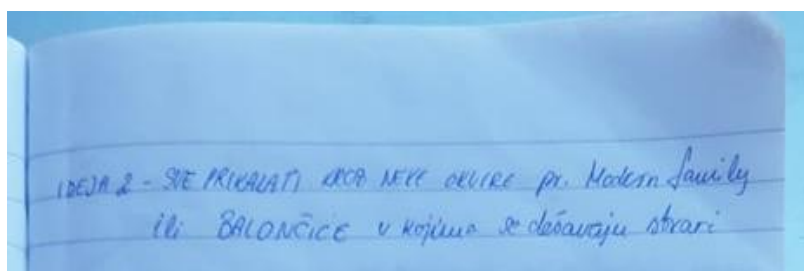 IDEJA 2 - SVE PRIKAZATI KROZ NEKE OKVIRE pr. Modern family
ili BALONČIĆE u kojima se dešavaju stvari